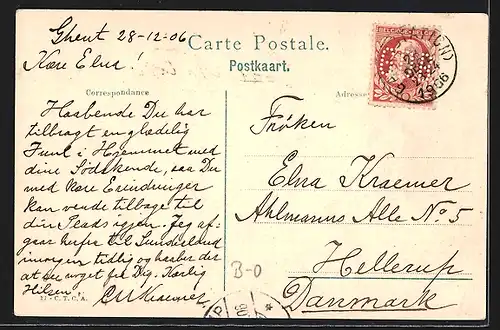 Ghent 28-12-06
Carte Postale.
Postkaart.
Kære Elna!
Correspondance
Haabende Du har
tilbragt en glædelig
Juul i Hjemmet med
dine Södskende, saa Du
med kære Erindringer
kan vende tilbage til
din Plads igjen. Jeg af-
gaar herfra til Sunderland
imorgen tidlig og haaber der
at noget fra Dig. Kærlig
Hilsen,
Adresse
Fröken
Elna Kraemer
Ahlmanns Alle No 5
Hellerup
Danmark
B-O
21 - C.T.C.A.
1906